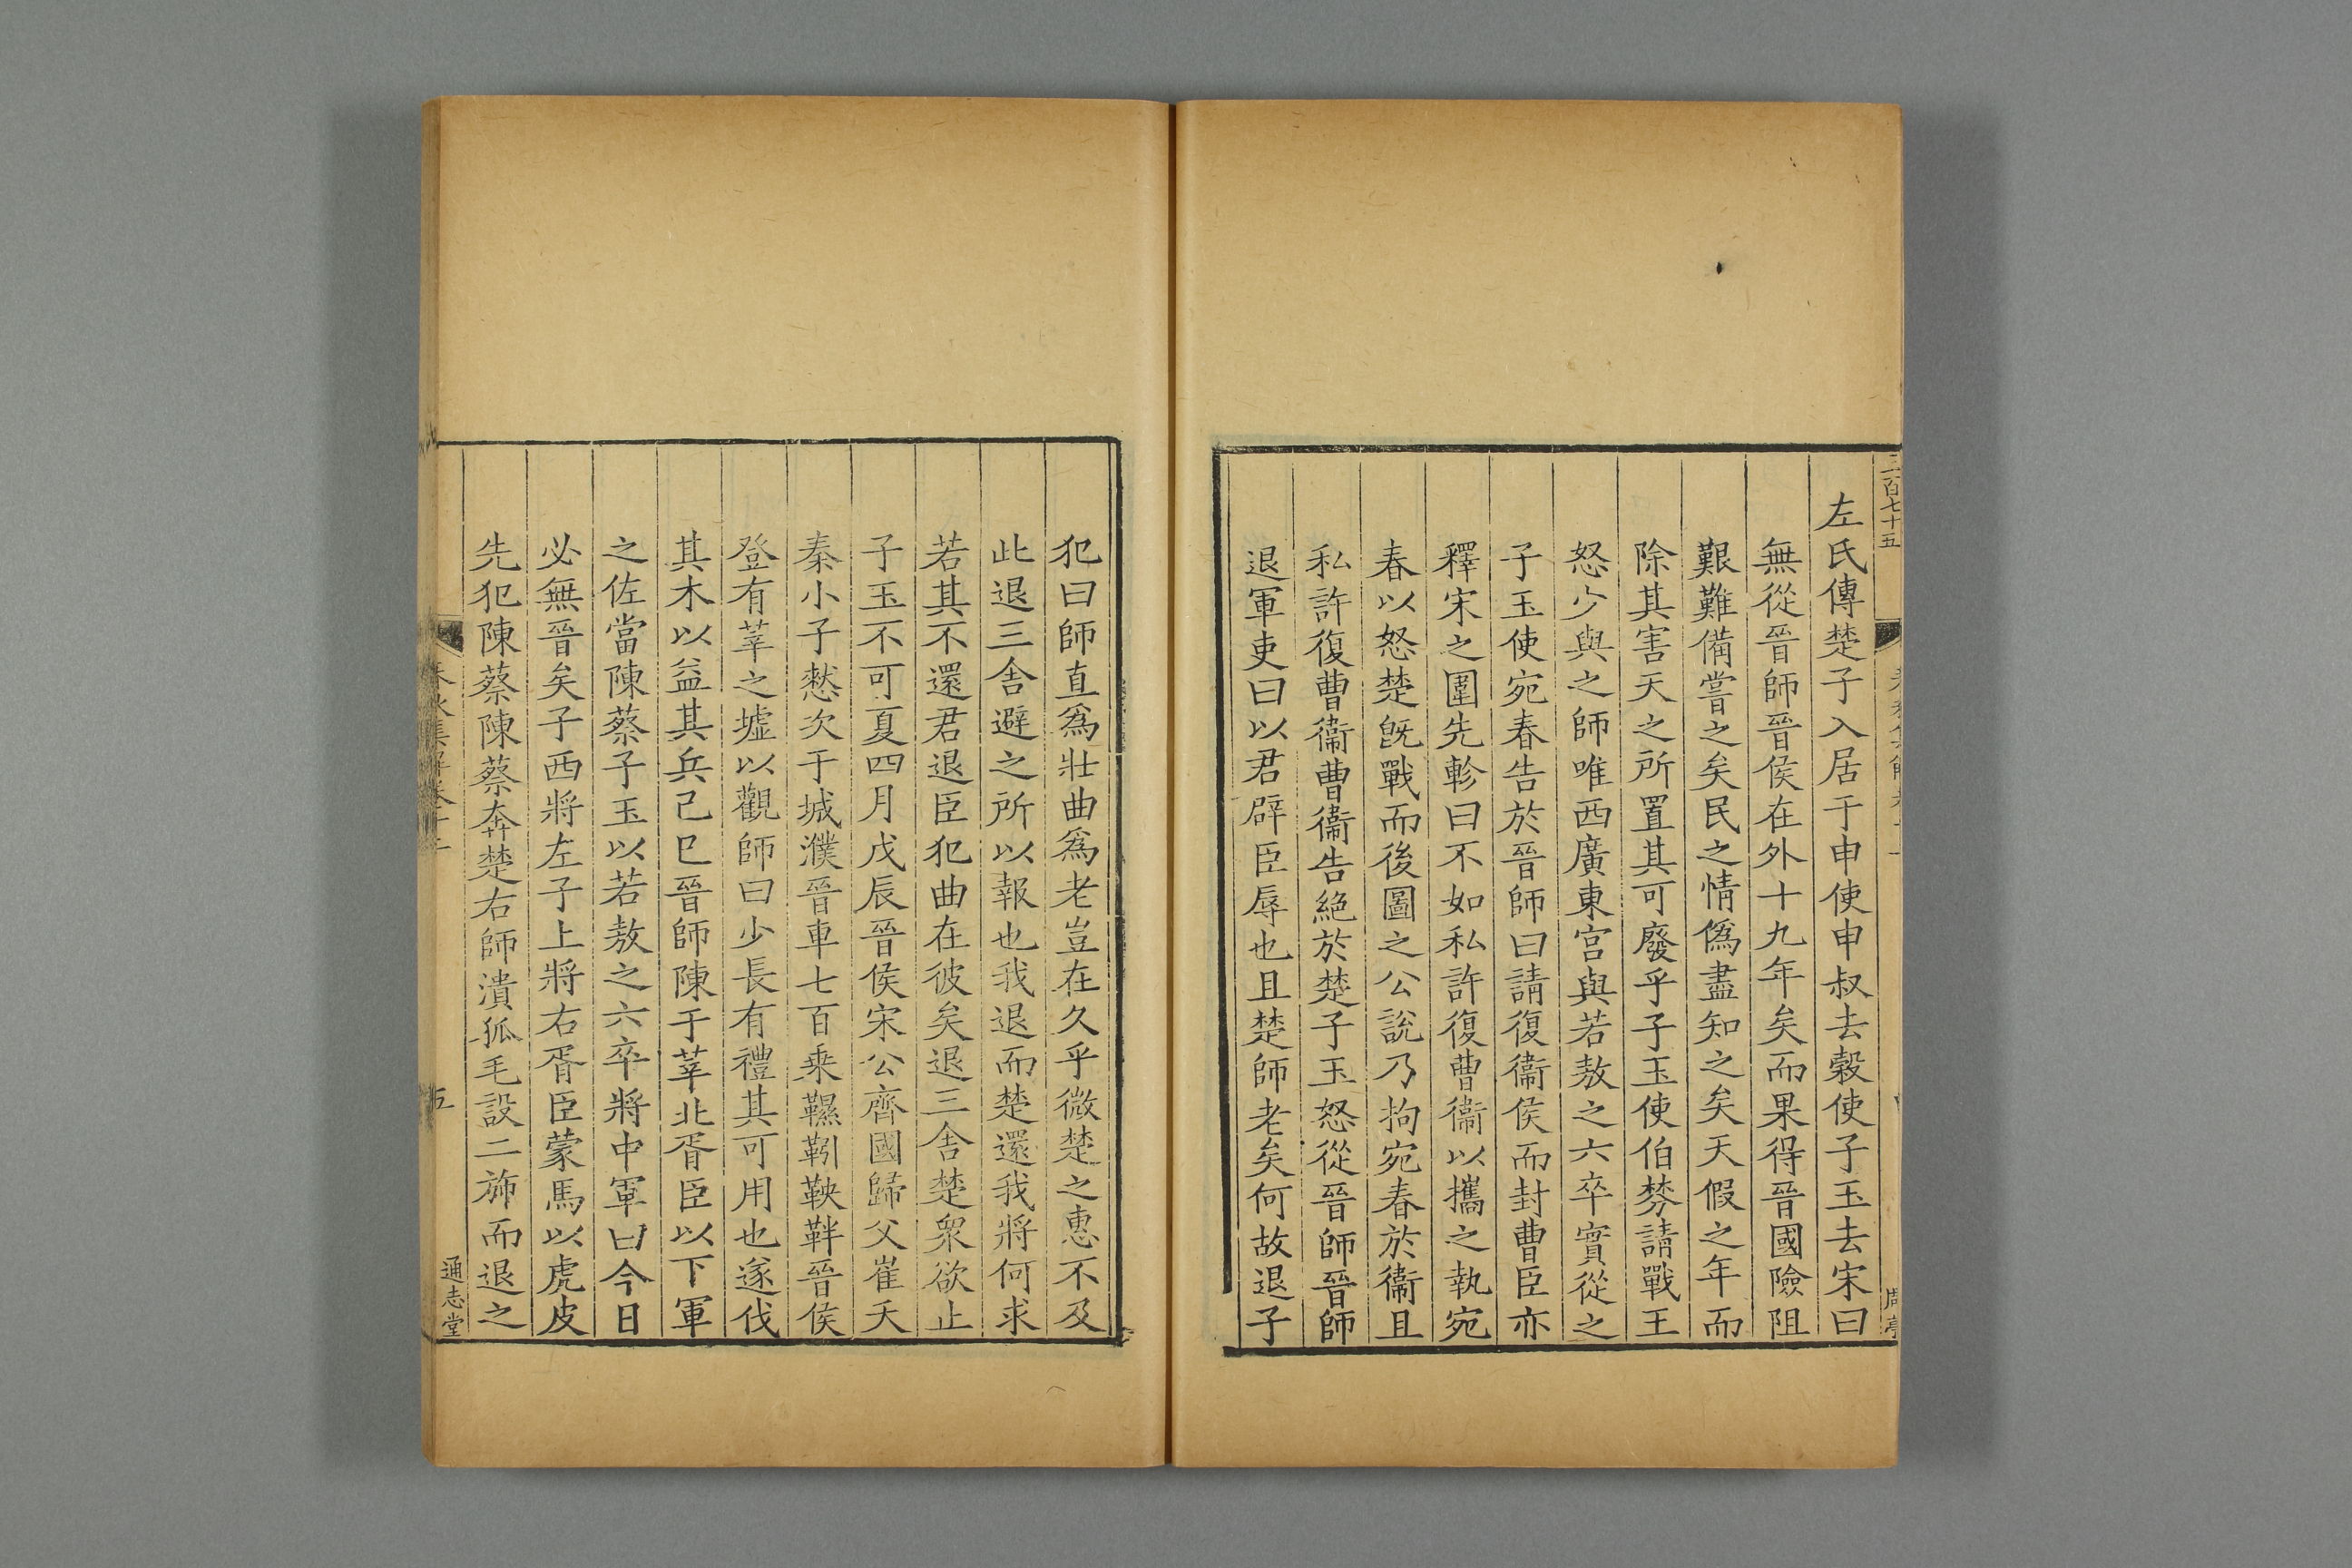 三百七十五
左氏傳楚子入居于申使申叔去穀使子玉去宋曰
無從晉師晉侯在外十九年矣而果得晉國險阻
艱難備嘗之矣民之情僞盡知之矣天假之年而
除其害天之所置其可廢乎子玉使伯棼請戰王
怒少與之師唯西廣東宮與若敖之六卒實從之
子玉使宛春告於晉師曰請復衞侯而封曹臣亦
釋宋之圍先軫曰不如私許復曹衞以攜之執宛
春以怒楚旣戰而後圖之公說乃拘宛春於衞且
私許復曹衞曹衞告絕於楚子玉怒從晉師晉師
退軍吏曰以君辟臣辱也且楚師老矣何故退子
犯曰師直爲壯曲爲老豈在久乎微楚之惠不及
此退三舍避之所以報也我退而楚還我將何求
若其不還君退臣犯曲在彼矣退三舍楚衆欲止
子玉不可夏四月戊辰晉侯宋公齊國歸父崔夭
秦小子憖次于城濮晉車七百乘韅靷鞅靽晉侯
登有莘之墟以觀師曰少長有禮其可用也遂伐
其木以益其兵己巳晉師陳于莘北胥臣以下軍
之佐當陳蔡子玉以若敖之六卒將中軍曰今日
必無晉矣子西將左子上將右胥臣蒙馬以虎皮
先犯陳蔡陳蔡奔楚右師潰狐毛設二旆而退之
春秋集解卷十二
五
通志堂